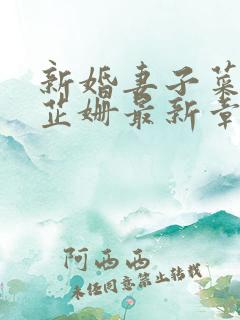 新婚妻子蕊
芷姗最新章
阿西西
未经同意禁止转载